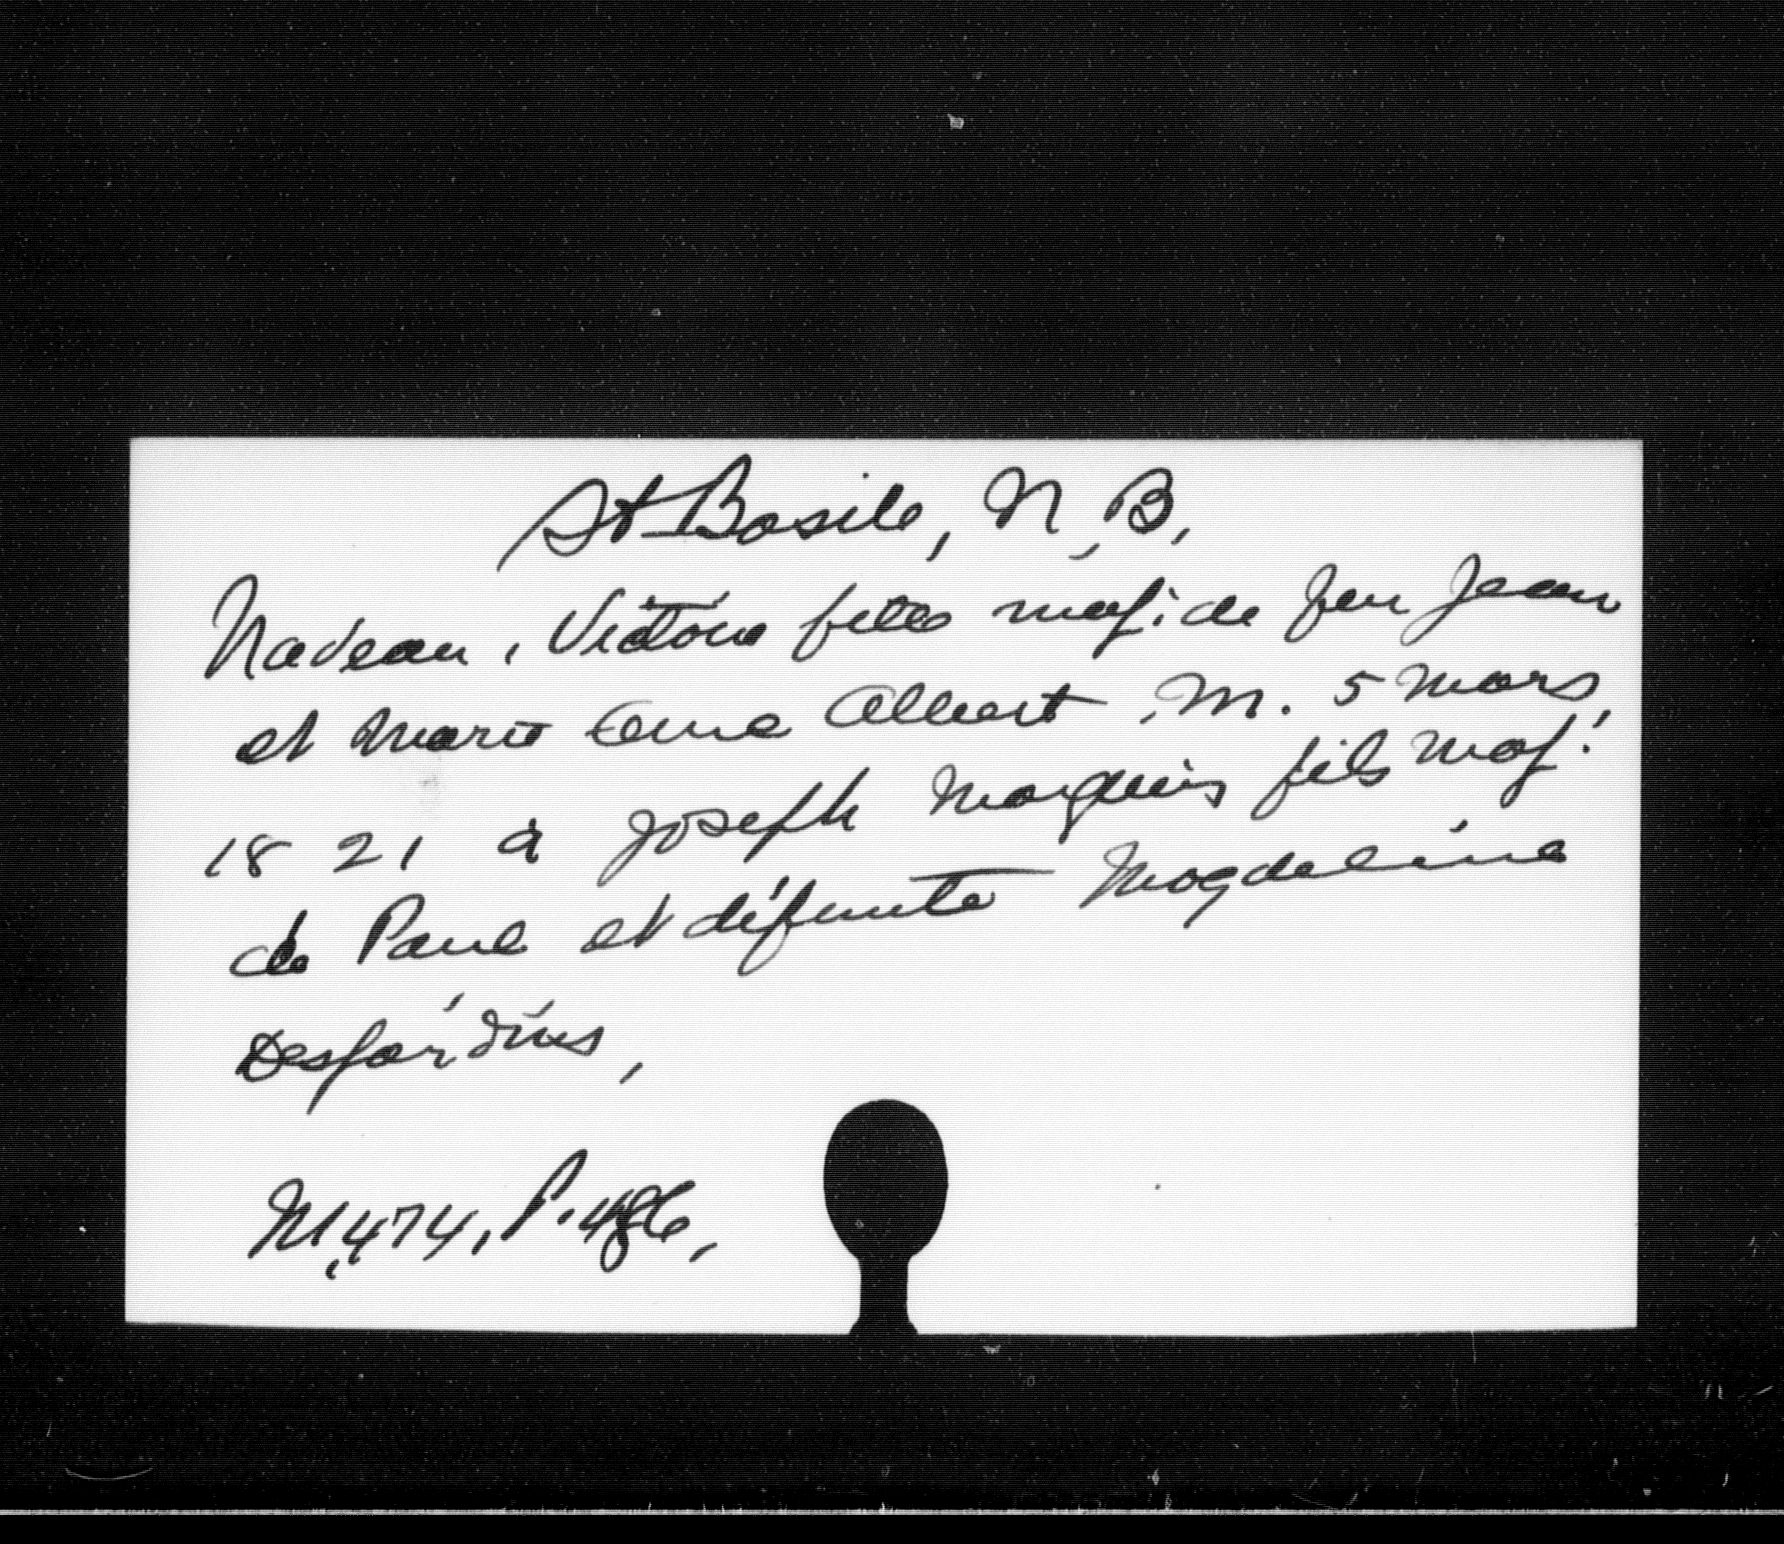 St Basile, N, B,
Nadeau, Victoire fille maj: de feu Jean
et Marie Anne Albert. M. 5 Mars,
1821 à Joseph Marquis fils maj:
de Paul et défunte Magdeleine
Desjardins,
M, 474, P. 486,